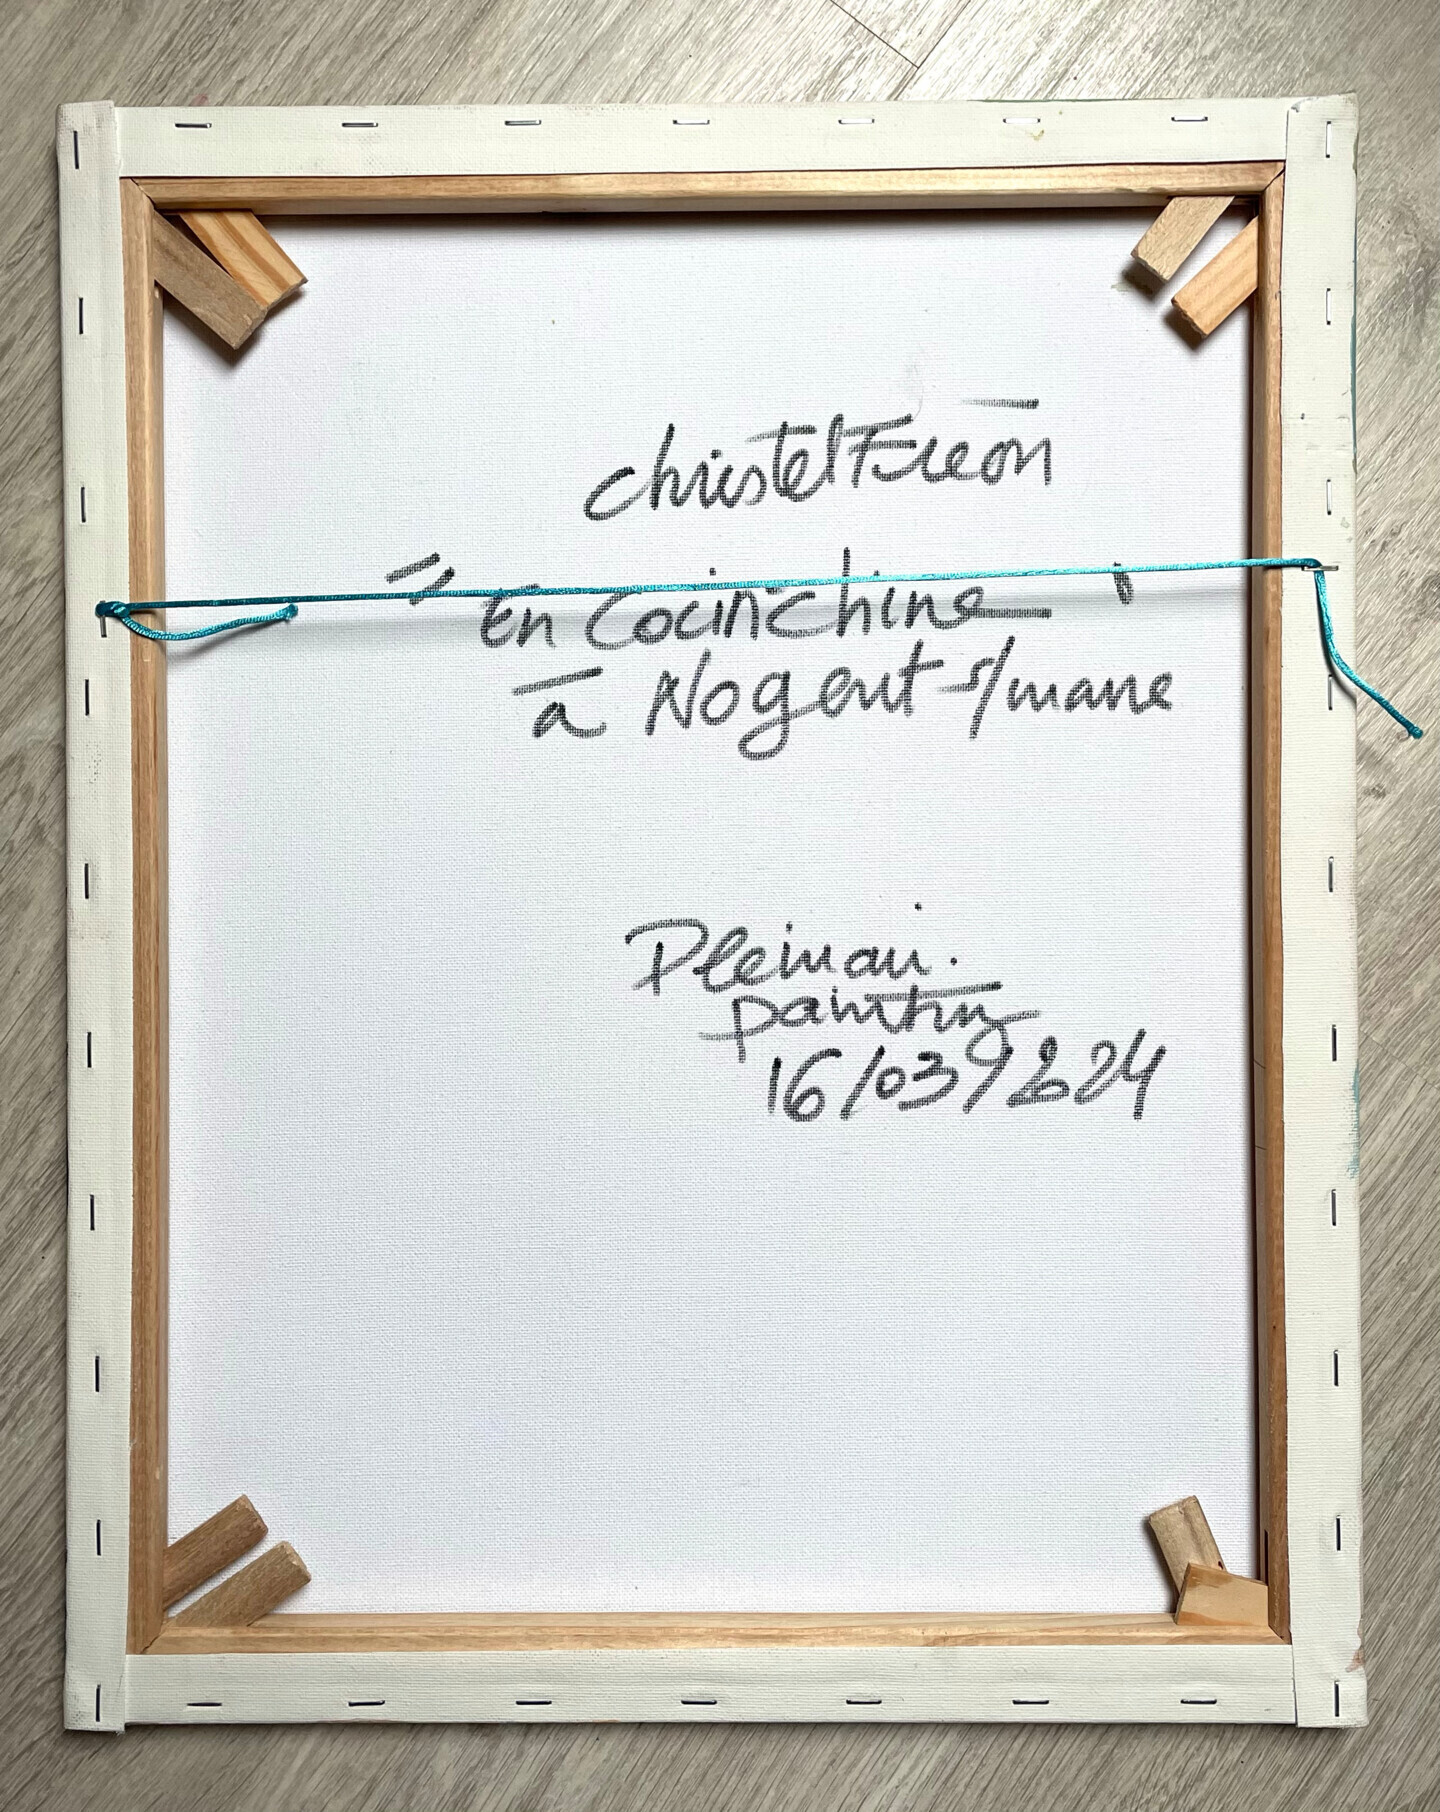 christel Fréon
"En Cocinchine"
à Nogent s/marne
Pleinair.
painting
16/03/2024